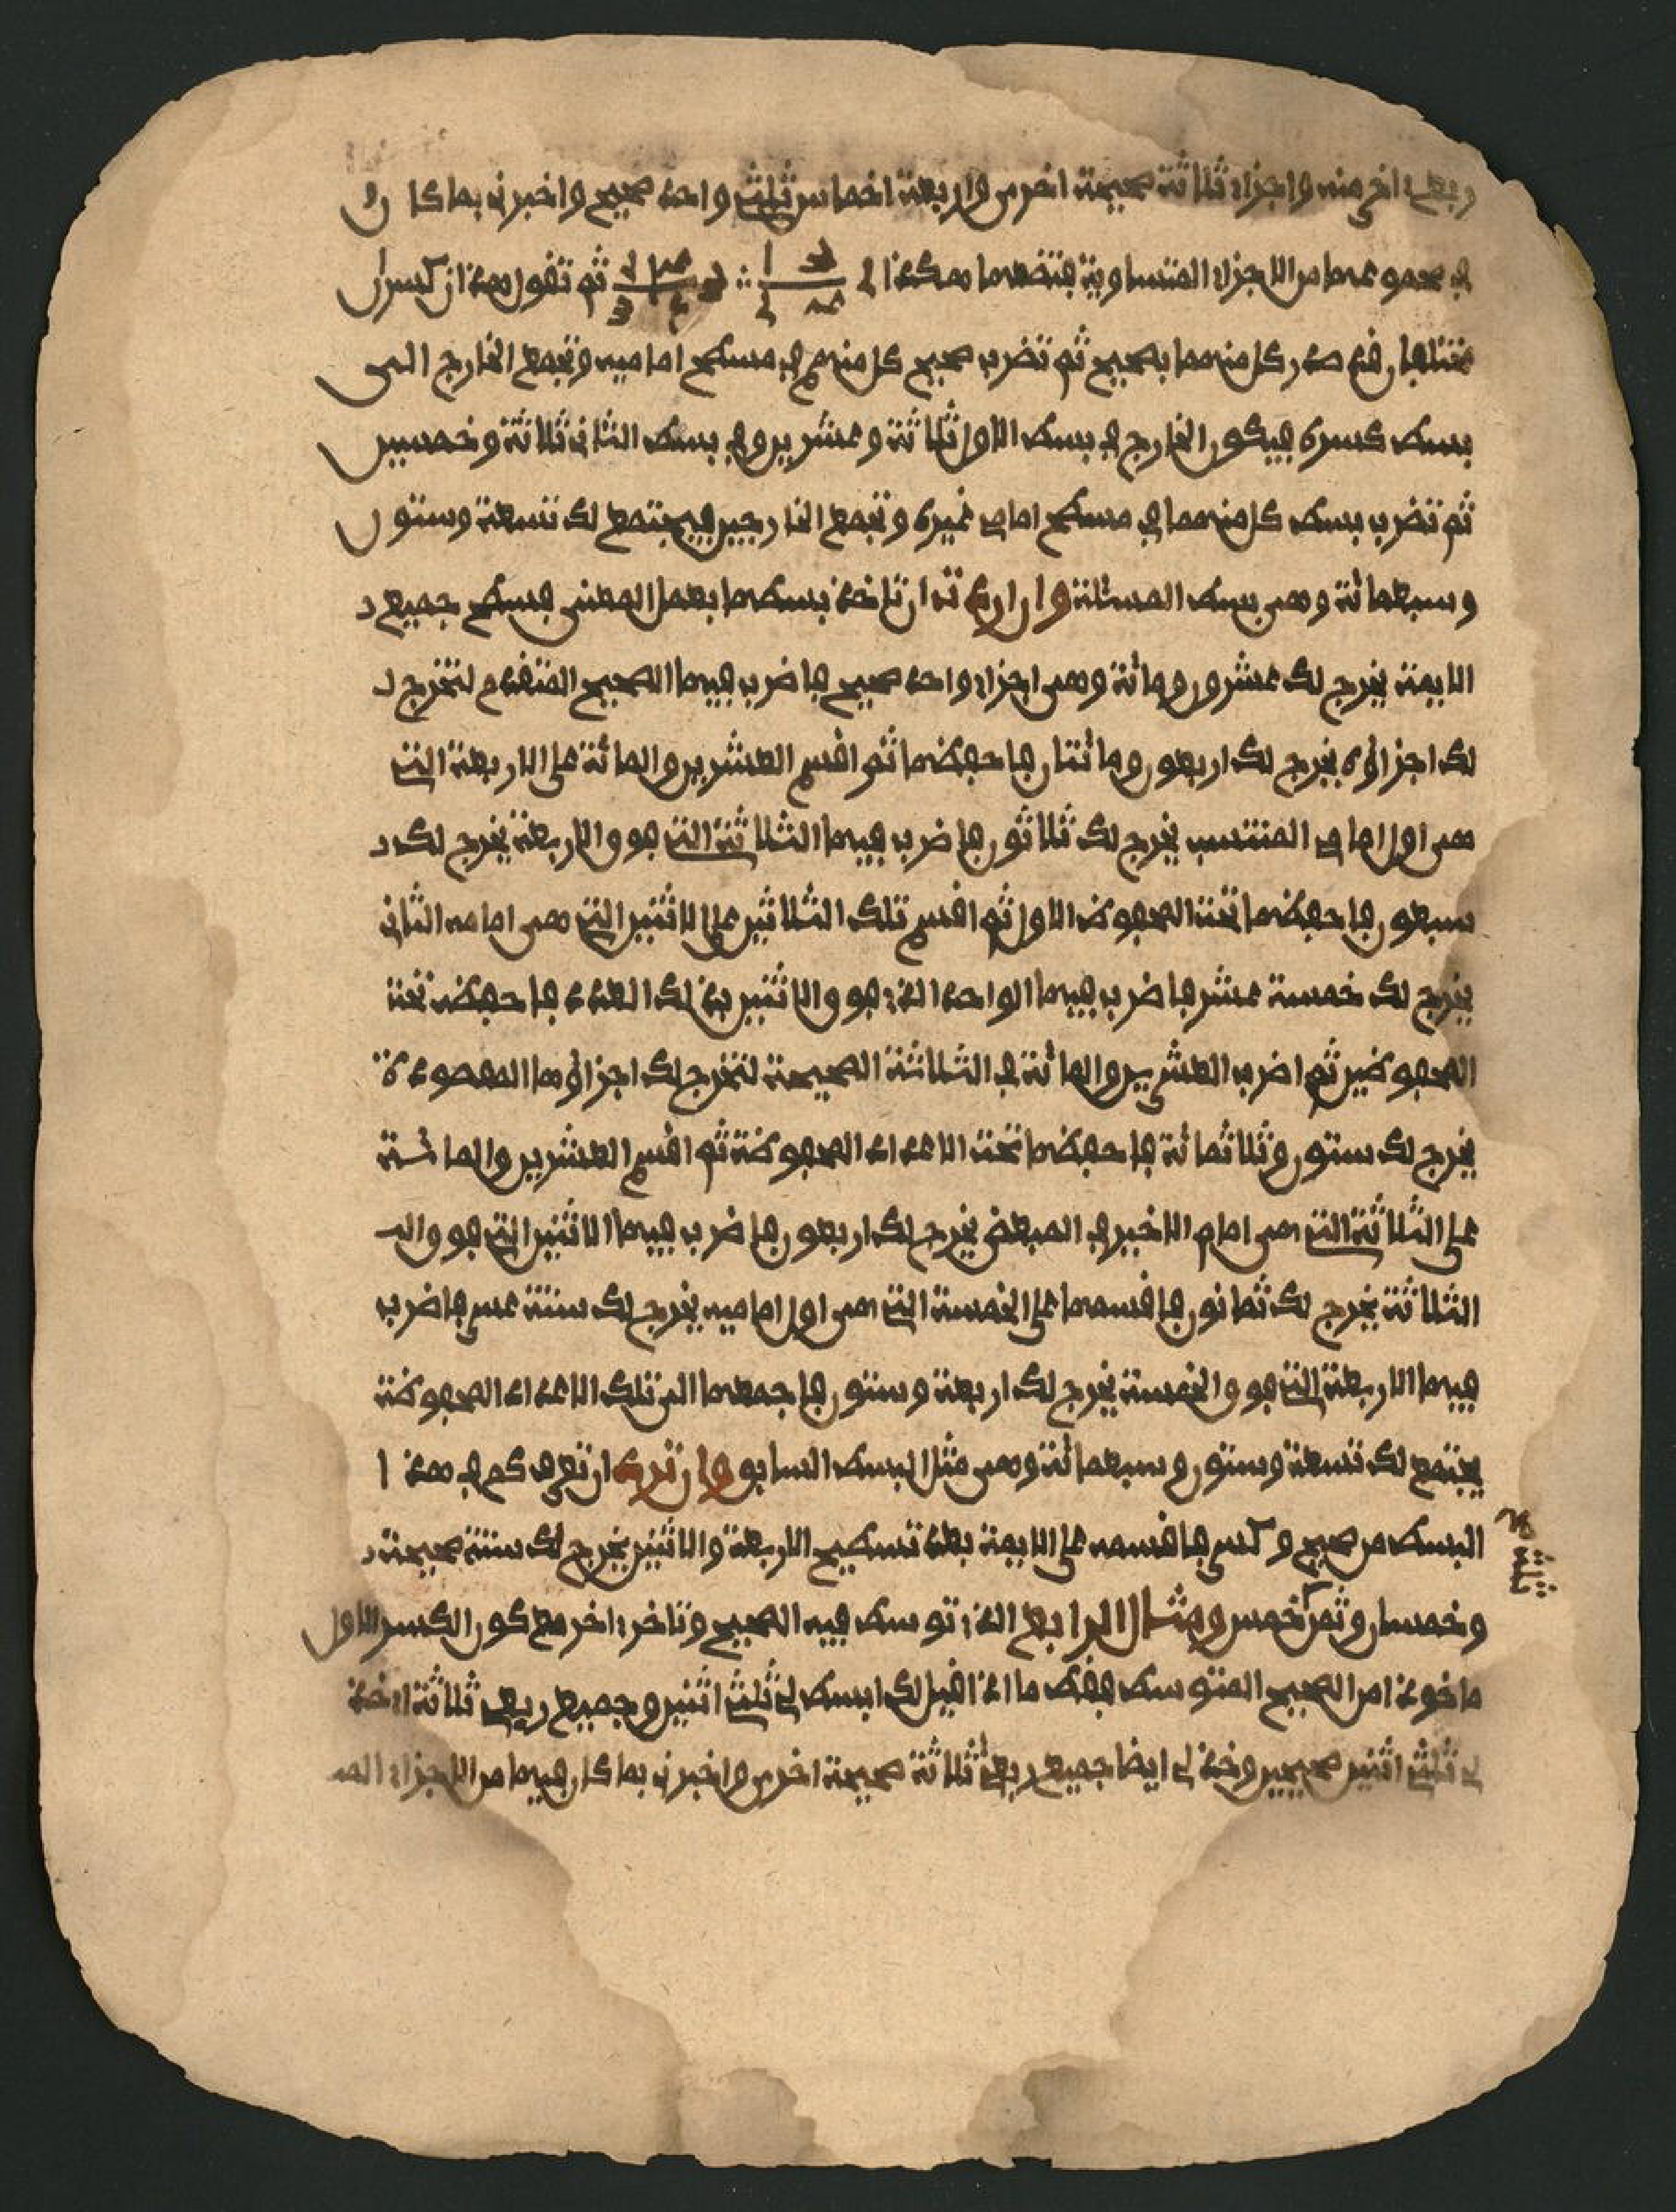 وربعي اخر منه واجزاء ثلاثة صحيحة اخرى واربعة اخماس ثلث واحد صحيح واخبرني بما كان
في مجموعهما من الاجزاء المتساوية فتضعهما هكذا ثم تقول هذان كسران
مختلفان قد صدر كل منهما بصحيح ثم تضرب صحيح كل منهم في مسطح اماميه وتجمع الخارج الى
بسط كسره فيكون الخارج في بسط الاول ثلاثة وعشرين وفي بسط الثاني ثلاثة وخمسين
ثم تضرب بسط كل منهما في مسطح امامي غيره وتجمع الخارجين فيجتمع لك تسعة وستون
وسبعمائة وهي بسط المسئلة وان اردت ان تاخذ بسطهما بعمل المعنى فسطح جميع
الايمة يخرج لك عشرون ومائة وهي اجزاء واحد صحيح فاضرب فيها الصحيح المتقدم لتخرج
لك اجزاؤه يخرج لك اربعون ومائتان فاحفظها ثم اقسم العشرين والمائة على الاربعة التي
هي اول امامي المنتسب يخرج لك ثلاثون فاضرب فيها الثلاثة التي فوق الاربعة يخرج لك
سبعون فاحفظها تحت المحفوظ الاول ثم اقسم تلك الثلاثين على الاثنين التي هي امامه الثاني
يخرج لك خمسة عشر فاضرب فيها الواحد الذي فوق الاثنين بذلك العدد فاحفظه تحت
المحفوظين ثم اضرب العشرين والمائة في الثلاثة الصحيحة لتخرج لك اجزاؤها المقصودة
يخرج لك ستون وثلاثمائة فاحفظها تحت الاعداد المحفوظة ثم اقسم العشرين والمائة
على الثلاثة التي هي امام الاخير في المبعض يخرج لك اربعون فاضرب فيها الاثنين التي فوق
الثلاثة يخرج لك ثمانون فاقسمها على الخمسة التي هي اول اماميه يخرج لك ستة عشر فاضرب
فيها الاربعة التي فوق الخمسة يخرج لك اربعة وستون فاجمعها الى تلك الاعداد المحفوظة
يجتمع لك تسعة وستون وسبعمائة وهي مثل البسط السابق وان ترد ان تعرف كم في هذا
البسط من صحيح وكسر فاقسمه على الايمة بعد تسطيح الاربعة والاثنين يخرج لك ستة صحيحة
وخمسان وثمن خمس ومثال الرابع الذي توسط فيه الصحيح وتاخر اخر مع كون الكسر الاول
ماخوذا من الصحيح المتوسط فقط ما اذا قيل لك ابسط لي ثلثي اثنين وجميع ربعي ثلاثة اي خذ
لي ثلثي اثنين صحيحين وخذ لي ايضا جميع ربعي ثلاثة صحيحة اخرى واخبرني بما كان فيهما من الاجزاء